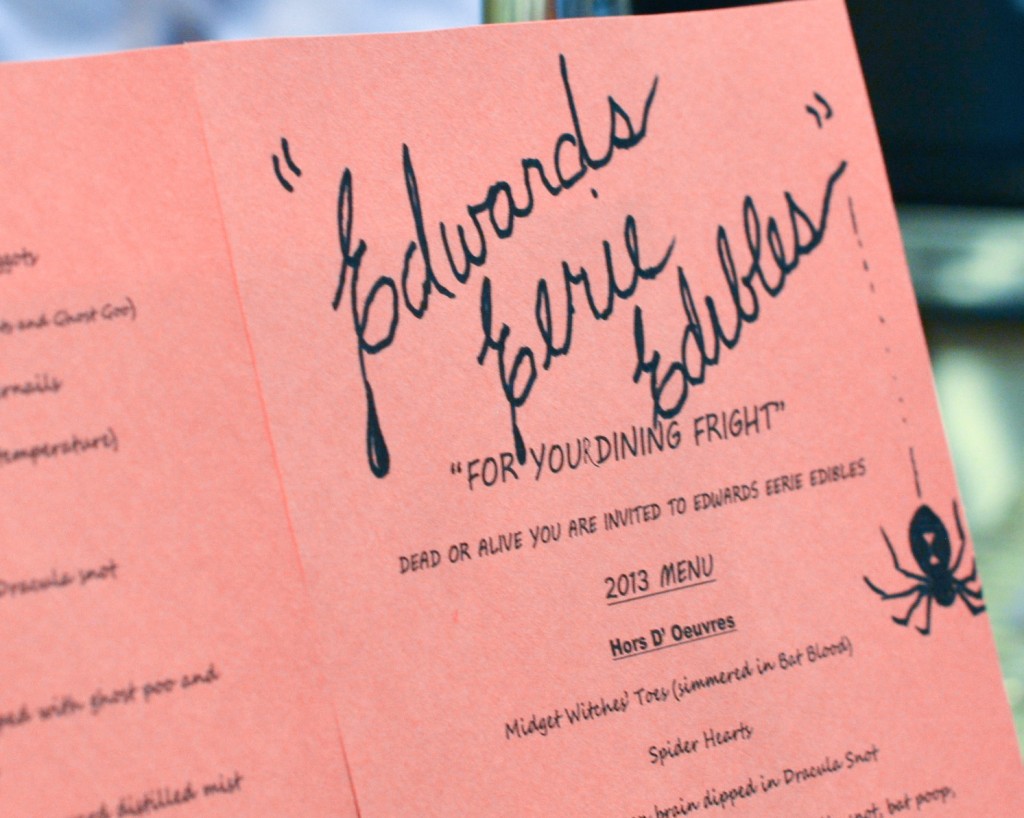 and Ghost Goo)
temperature)
Dracula snot
with ghost poo and
distilled mist
"Edwards
Eerie
Edibles"
"FOR YOUR DINING FRIGHT"
DEAD OR ALIVE YOU ARE INVITED TO EDWARDS EERIE EDIBLES
2013 MENU
Hors D' Oeuvres
Midget Witches' Toes (simmered in Bat Blood)
Spider Hearts
brain dipped in Dracula Snot
bat poop,